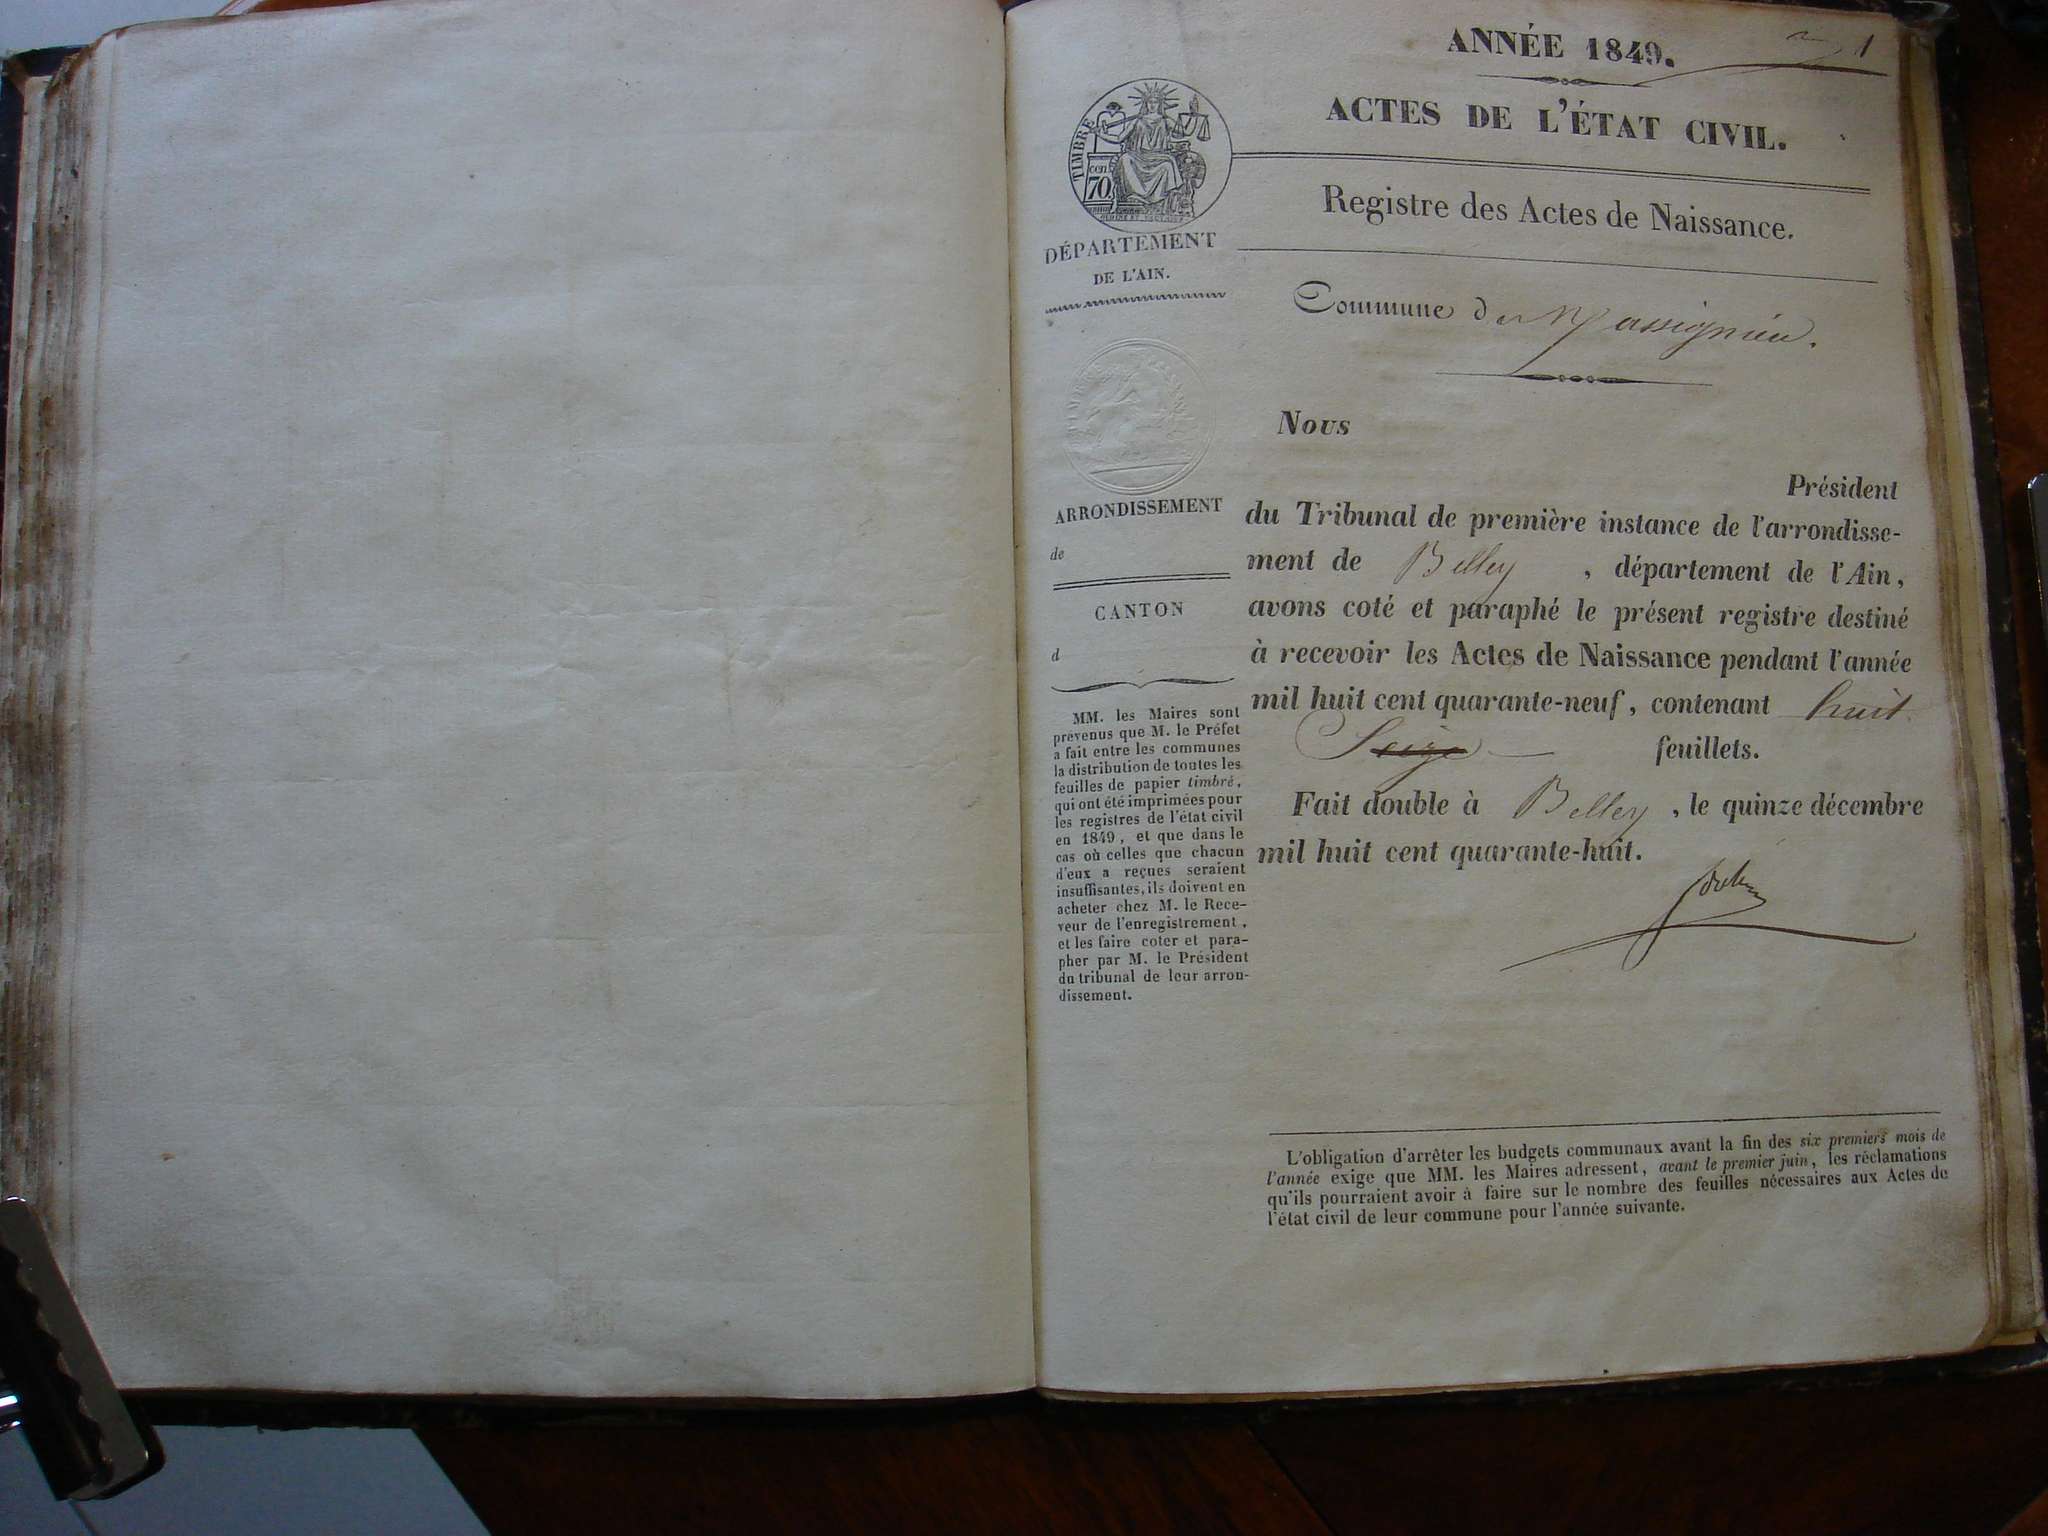 ANNÉE 1849.
1
ACTES DE L'ÉTAT CIVIL.
TIMBRE
cen
70
Registre des Actes de Naissance.
DÉPARTEMENT
DE L'AIN.
Commune de Massignieu.
ARRONDISSEMENT
de
CANTON
d
MM. les Maires sont
prévenus que M. le Préfet
a fait entre les communes
la distribution de toutes les
feuilles de papier timbré,
qui ont été imprimées pour
les registres de l'état civil
en 1849, et que dans le
cas où celles que chacun
d'eux a reçues seraient
insuffisantes, ils doivent en
acheter chez M. le Rece-
veur de l'enregistrement,
et les faire coter et para-
pher par M. le Président
du tribunal de leur arron-
dissement.
Nous
Président
du Tribunal de première instance de l'arrondisse-
ment de Belley , département de l'Ain,
avons coté et paraphé le présent registre destiné
à recevoir les Actes de Naissance pendant l'année
mil huit cent quarante-neuf, contenant huit
Seize feuillets.
Fait double à Belley , le quinze décembre
mil huit cent quarante-huit.
L'obligation d'arrêter les budgets communaux avant la fin des six premiers mois de
l'année exige que MM. les Maires adressent, avant le premier juin, les réclamations
qu'ils pourraient avoir à faire sur le nombre des feuilles nécessaires aux Actes de
l'état civil de leur commune pour l'année suivante.